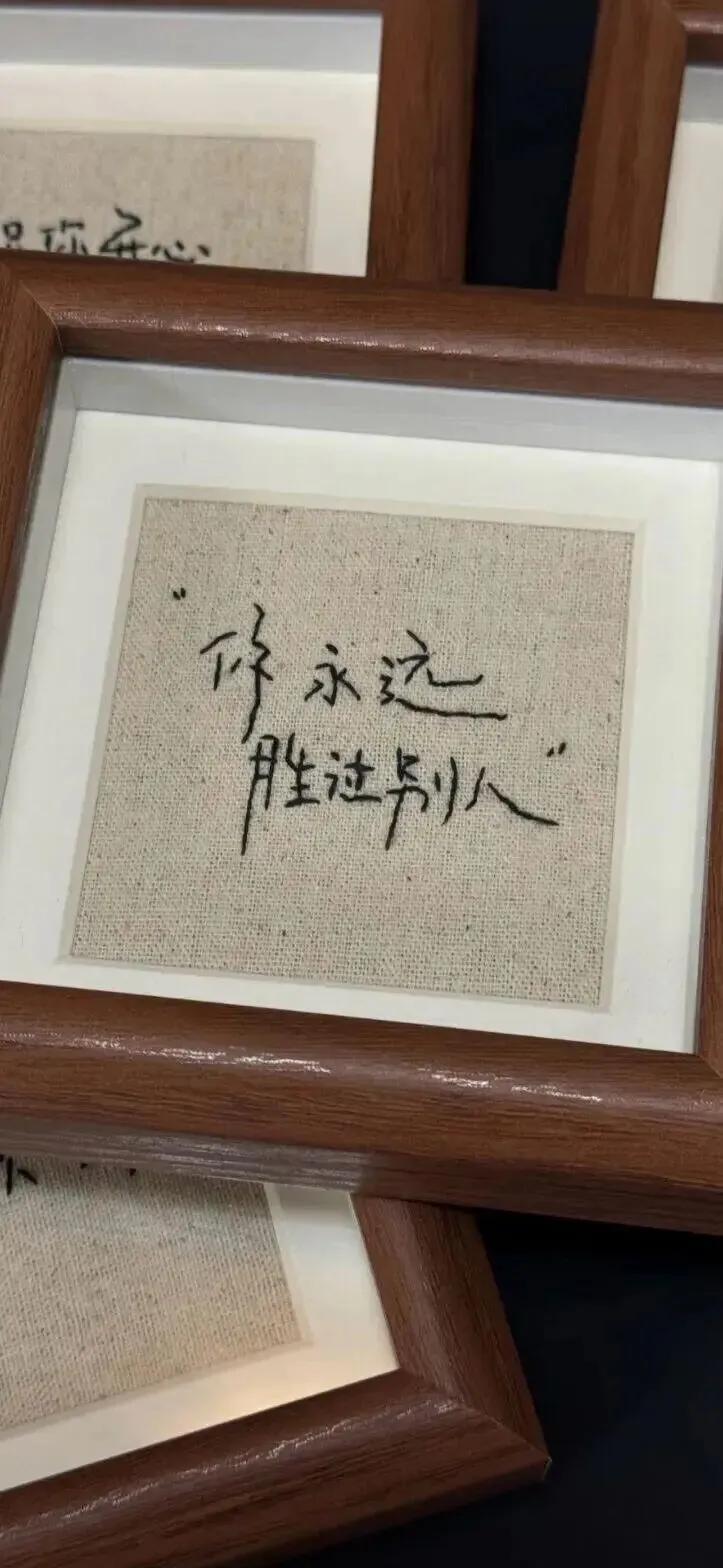 你开心
“你永远
胜过别人”